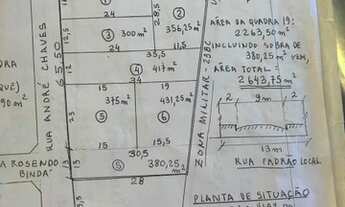 24
28,5
②
356,25
m²
③ 300 m²
34
11,5
35,5
④ 417 m²
34
15
15
375 m²
431,25
m²
⑤
⑥
23
12
15
15,5
30,5
⑤ 380,25
m²
13
28
RUA ANDRÉ CHAVES
65,50
90 m²
A ROSENDO
BINDA
ZONA MILITAR - 23BC
ÁREA DA QUADRA 19:
2263,50 m²
INCLUINDO SOBRA DE
380,25 m²
ÁREA TOTAL =
2643,75 m²
2
9m
2
13m
RUA PADRÃO LOCAL
PLANTA DE SITUAÇÃO